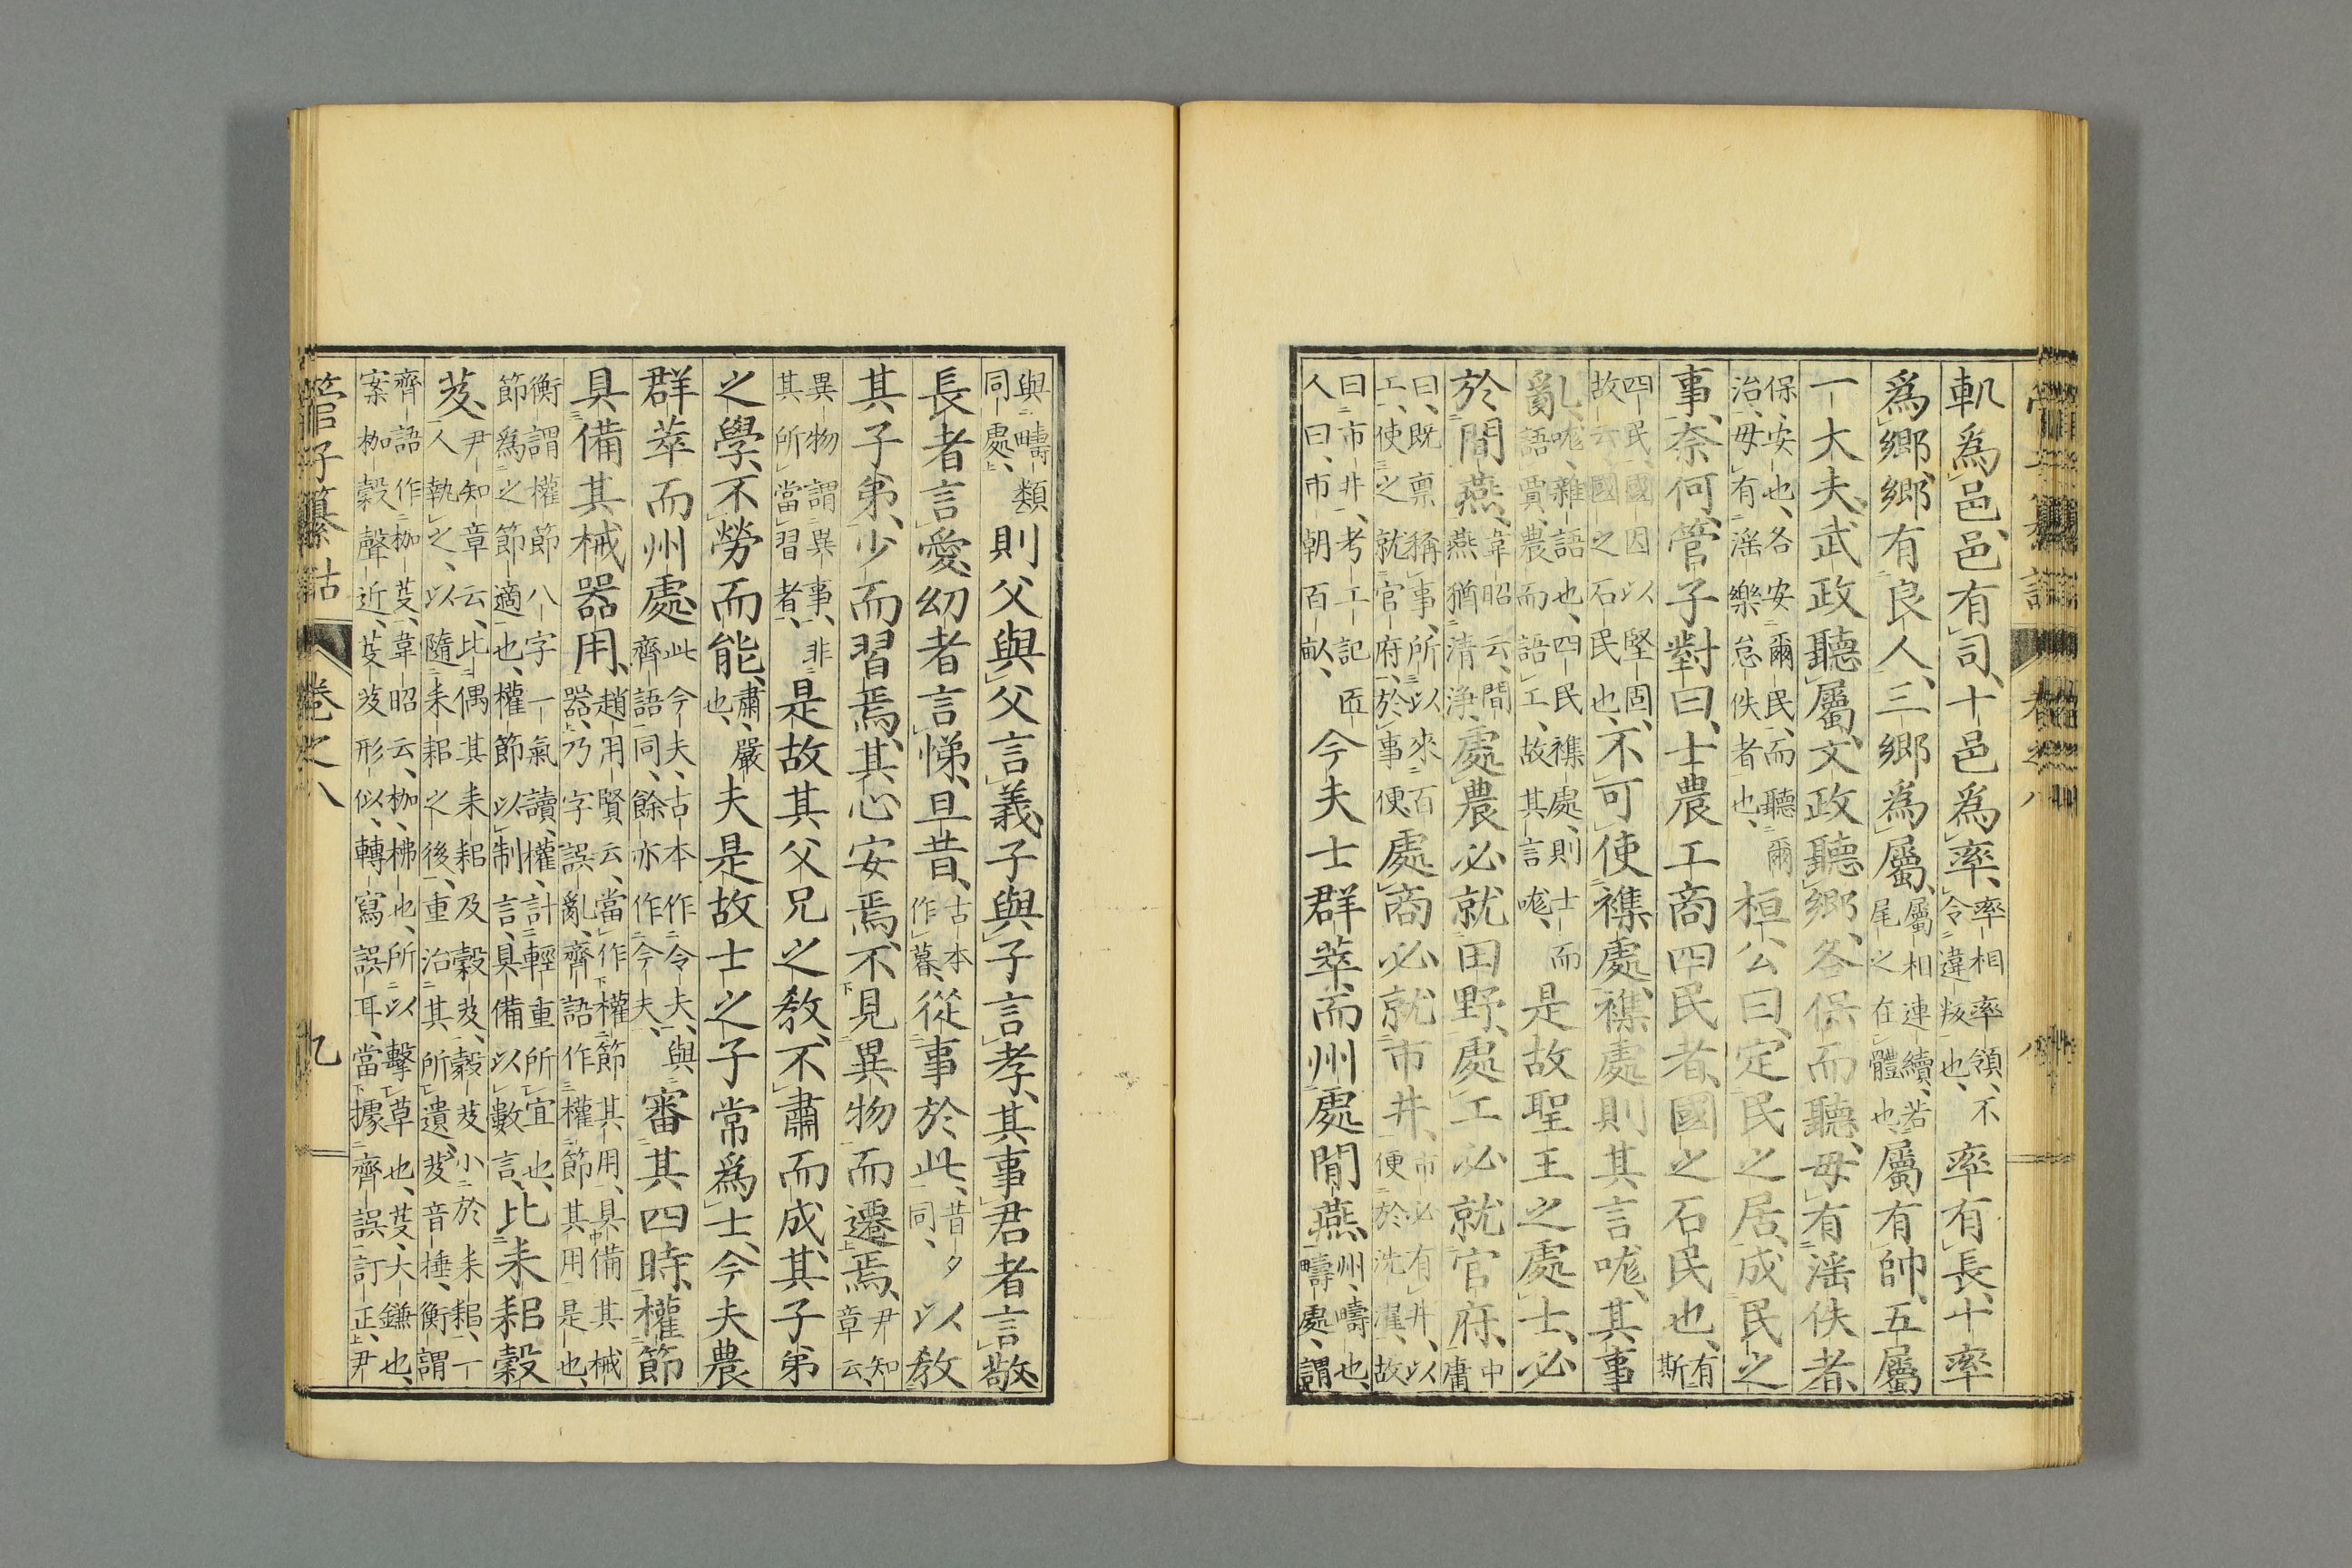 軌爲邑、邑有司、十邑爲率、率相率領、不令違叛也、率有長、十率
爲鄉、鄉有良人、三鄉爲屬、屬相連續、若尾之在體也、屬有帥、五屬
一大夫、武政聽屬、文政聽鄉、各保而聽、毋有淫佚者、
保安也、各安爾民、而聽爾治、毋有淫樂怠佚者也、桓公曰、定民之居、成民之
事、奈何、管子對曰、士農工商四民者、國之石民也、有斯
四民、國因以堅固、故云國之石民也、不可使襍處、襍處則其言哤、其事
亂、哤、雜語也、四民襍處、則士而語賈、農而語工、故其言哤、是故聖王之處士、必
於閒燕、韋昭云、閒燕猶清淨、處農必就田野、處工必就官府、中庸
曰、既稟稱事、所以來百工、使之就官府、於事便、處商必就市井、市必有井、以便於洗濯、故
曰市井、考工記匠人曰、市朝百畝、今夫士群萃而州處閒燕、州、疇也、疇處、謂
與疇類同處、則父與父言義、子與子言孝、其事君者言敬、
長者言愛、幼者言悌、旦昔、古本作暮、從事於此、昔夕同、以教
其子弟、少而習焉、其心安焉、不見異物而遷焉、尹知章云、
異物謂異事、非其所當習者、是故其父兄之教、不肅而成、其子弟
之學、不勞而能、肅、嚴也、夫是故士之子常爲士、今夫農
群萃而州處、此今夫、古本作令夫、與齊語同、餘亦作今夫、審其四時、權節
具備其械器用、趙用賢云、當作權節其用、具備其械器、乃字誤亂、齊語作權節其用是也、
衡謂權節八字一氣讀、權、計輕重所宜也、節爲之節適也、權節以制言、具備以數言、比耒耜穀
芨、尹知章云、比偶其耒耜及穀芨、穀芨小於耒耜、一人執之、以隨耒耜之後、重治其所遺、芨音捶、衡謂
齊語作枷芟、韋昭云、枷、柫也、所以擊草也、芟、大鎌也、案枷穀聲近、芟芨形似、轉寫誤耳、當據齊語訂正、尹
管子纂詁 卷之八 九